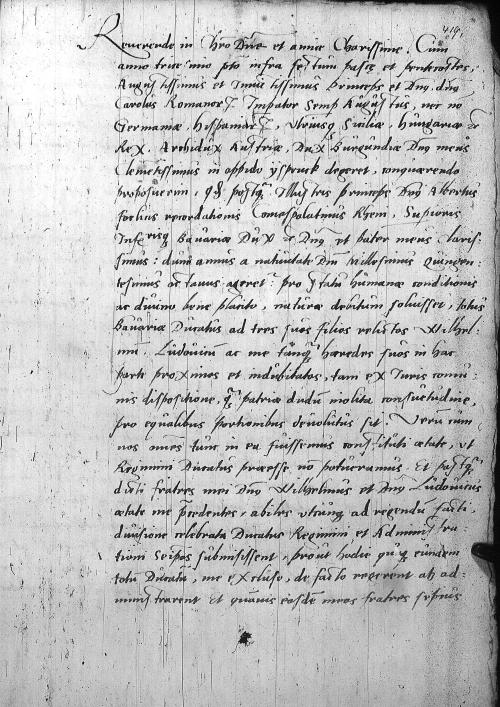 419.
Reverende in Chro Dne et amice Charissime. Cum
anno trice imo pto infra festum pasce et pentecostes,
Augustissimus et Invictissimus Princeps et Dns, dns
Carolus Romanor Impator Semp Augustus, nec no
Germaniæ, Hispaniar, Utriusq Siciliæ, Hungariæ zc
Rex. Archidux Austriæ, Dux Burgundiæ Dns meus
Clemetissimus in oppido ysprugk degeret, conquerendo
proposuerim, qd postq Illustris princeps Dns Albertus
foelicis recordationis Comespalatinus Rheni, Supioris
Inferisq Bavariæ Dux zc Dns et pater meus Caris-
simus: dum annus a nativitate Dni Millesimus Quingen-
tesimus octavus ageret: pro statu humanæ conditionis
ac divino bene placito, naturæ debitum soluisset, totus
Bavariæ Ducatus ad tres suos filios relictos Wilhel-
mu. Ludovicum ac me tanq hæredes suos in hac
parte proximos et indubitatos, tam ex Iuris comu-
nis dispositione, q patriæ dudum molita consuetudine,
pro equalibus portionibus devolutus sit. Veru cum
nos omes tunc in ea fuissemus constituti ætate, ut
Regimini Ducatus præesse no potueramus. Et postq
dicti fratres mei Dns Wilhelmus et Dns Ludovicus
ætate me pcedentes, abiles utcunq ad regendu facti,
divisione celebrata Ducatus Regimini et Adminstra
tioni seipos submisissent, prout hodie quoq eundem
totu Ducatu, me excluso, de facto regerent ac ad-
ministrarent Et quamvis eosde meos fratres sepius